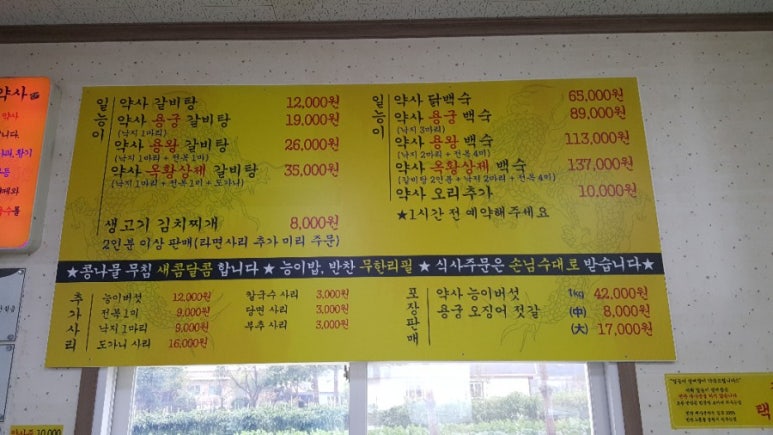 일능이
약사 갈비탕 12,000원
약사 용궁 갈비탕 19,000원
(낙지 1마리)
약사 용왕 갈비탕 26,000원
(낙지 1마리 + 전복 1미)
약사 옥황상제 갈비탕 35,000원
(낙지 1마리 + 전복 1미 + 도가니)
생고기 김치찌개 8,000원
2인분 이상 판매(라면사리 추가 미리 주문)
일능이
약사 닭백숙 65,000원
약사 용궁 백숙 89,000원
(낙지 3마리)
약사 용왕 백숙 113,000원
(낙지 2마리 + 전복 4미)
약사 옥황상제 백숙 137,000원
(갈비탕 2인분 + 낙지 2마리 + 전복 4미)
약사 오리추가 10,000원
★1시간 전 예약해주세요
★콩나물 무침 새콤달콤 합니다 ★ 능이밥, 반찬 무한리필 ★ 식사주문은 손님수대로 받습니다★
추가사리
능이버섯 12,000원
전복 1미 9,000원
낙지 1마리 9,000원
도가니 사리 16,000원
칼국수 사리 3,000원
당면 사리 3,000원
부추 사리 3,000원
포장판매
약사 능이버섯 1kg 42,000원
용궁 오징어 젓갈 (中) 8,000원
(大) 17,000원
약사
택